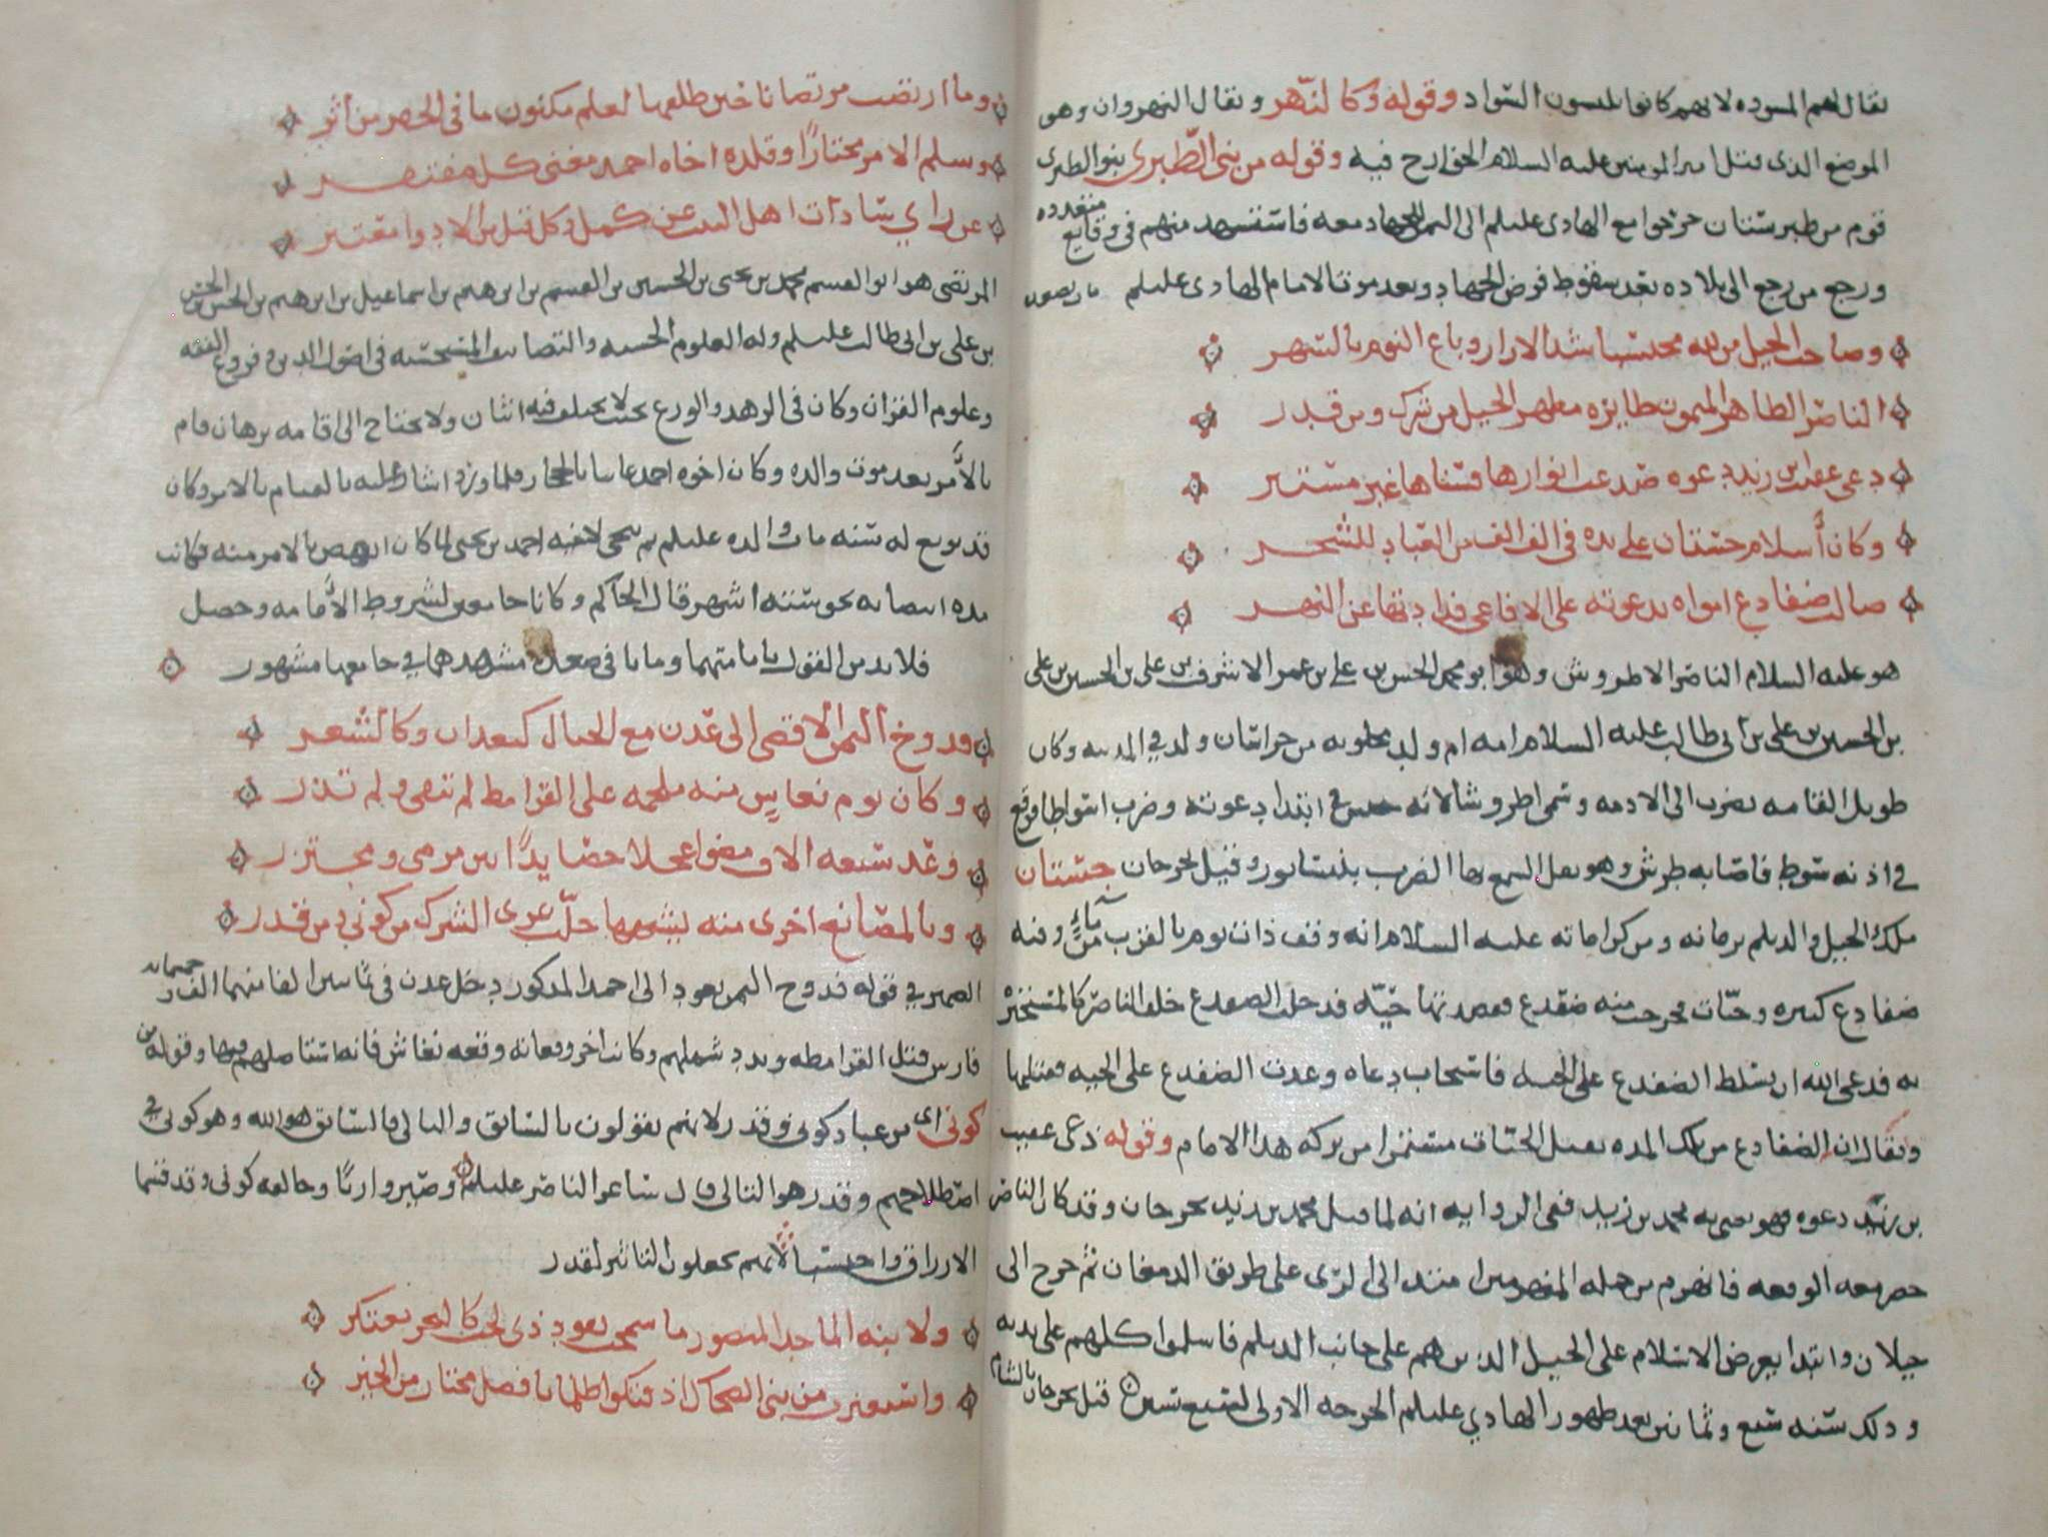 يقال لهم المسوده لانهم كانوا يلبسون السواد وقوله وكالنهر ويقال النهروان وهو
الموضع الذى قتل امير المومنين عليه السلام الخوارج فيه وقوله من بنى الطبرى بنو الطبرى
قوم من طبرستان خرجوا مع الهادى عليلم الى اليمن للجهاد معه فاستشهد منهم فى وقايع متعدده
ورجع من رجع الى بلاده بعد سقوط فرض الجهاد وبعد موت الامام الهادى عليلم
وصاحب الجيل من لله محتسبا شد الازار وباع النوم بالسهر
الناصر الطاهر الميمون طايره مطهر الجيل من شرك ومن قدر
دعى عقيب ابن زيد دعوه صدعت انوارها فسناها غير مستتر
وكان اسلام جستان على يده فى الف الف من العباد للشجر
صالت ضفادع امواه بدعوته على الافاعى فذادتها عن النهر
هو عليه السلام الناصر الاطروش وهو ابو محمد الحسن بن على بن عمر الاشرف بن على بن الحسين بن على
بن الحسين بن على بن ابى طالب عليه السلام امه ام ولد مجلوبه من خراسان ولد فى المدينه وكان
طويل القامه يضرب الى الادمه وسمى اطروشا لانه حبس فى ابتدا دعوته وضرب اسواطا فوقع
فى اذنه سوط فاصابه طرش وهو ثقل السمع بها الضرب بنيسابور وقيل بجرجان جستان
ملك الجيل والديلم بزمانه ومن كراماته عليه السلام انه وقف ذات يوم بالقرب من ماء وفيه
ضفادع كثيره وحيات فخرجت منه ضفدع فقصدتها حيه فدخلت الضفدع خلف الناصر كالمستجير
به فدعى الله ان يسلط الضفدع على الحيه فاستجاب دعاه وعدت الضفدع على الحيه فقتلتها
ويقال ان الضفادع من تلك المده تقتل الحيات مستمرا من بركه هذا الامام وقوله دعى عقيب
بن زيد دعوه فهو يعنى به محمد بن زيد ففى الروايه انه لما قتل محمد بن زيد بجرجان وقد كان الناصر
حضر معه الوقعه فانهزم من جمله المنهزمين وامتد الى الرى على طريق الدمغان ثم خرج الى
جيلان وابتدا بعرض الاسلام على الجيل الذين هم على جانب الديلم فاسلموا كلهم على يديه
وذلك سنه سبع وثمانين بعد ظهور الهادي عليلم الخرجه الاولى لسبع سنين قتل بجرجان
وما ارتضت مرتضانا حين طلعها لعلم مكنون ما فى الجفر من اثر
وسلم الامر مختارا وقلده اخاه احمد مغنى كل مفتقر
عن راي سادات اهل البيت عن كمل وكل قيل من الادوا مقتبر
المرتضى هو ابو القسم محمد بن يحيى بن الحسين بن القسم بن ابرهيم بن اسماعيل بن ابرهيم بن الحسن بن الحسن
بن على بن ابى طالب عليلم وله العلوم الحسنه والتصانيف المستحسنه فى اصول الدين وفروع الفقه
وعلوم القران وكان فى الزهد والورع بحيث لا يختلف فيه اثنان ولا يحتاج الى اقامه برهان قام
بالامر بعد موت والده وكان اخوه احمد غايبا بالحجاز فلما ورد اشار عليه بالقيام بالامر وكان
قد بويع له سنه مات والده عليلم ثم تنحى لاخيه احمد بن يحيى لما كان انهض بالامر منه فكانت
مده انتصابه نحو سته اشهر قال الحاكم وكانا جامعين لشروط الامامه وحصل
فلابد من القول بامامتهما وماتا فى صعده مشهدهما فى جامعها مشهور
ودوخ اليمن الاقصى الى عدن مع الجبال كبعدان وكالشعر
وكان يوم نغاش منه ملحمه على القرامط لم تبقى ولم تذر
وقد سبعه الاف مضوا عجلا حصايدا بين مرمى ومجتزر
وبالمصانع اخرى منه يشبهها حلت عرى الشرك من كونى ومن قدر
الضمير فى قوله ودوخ اليمن يعود الى احمد المذكور دخل عدن فى ثمانين الفا منهما الف وخمسمايه
فارس وقتل القرامطه وبدد شملهم وكانت اخر وقعاته وقعه نغاش فانه استاصلهم فيها وقوله من
كونى اى من عباد كونى وقدر لانهم يقولون بالسابق والتالى فالسابق هو الله وهو كونى فى
اصطلاحهم وقدر هو التالى قال شاعر الناصر عليلم وصيروا ربا وخالقه كونى وقد قسما
الارزاق واحتسبا لانهم يجعلون التاثير لقدر
ولابنه الماجد المنصور ما سمحت يعود ذى لجب كالبحر معتكر
واستعبرت من بنى الضحاك اذ فتكوا ظلما بافضل مختار من الخير